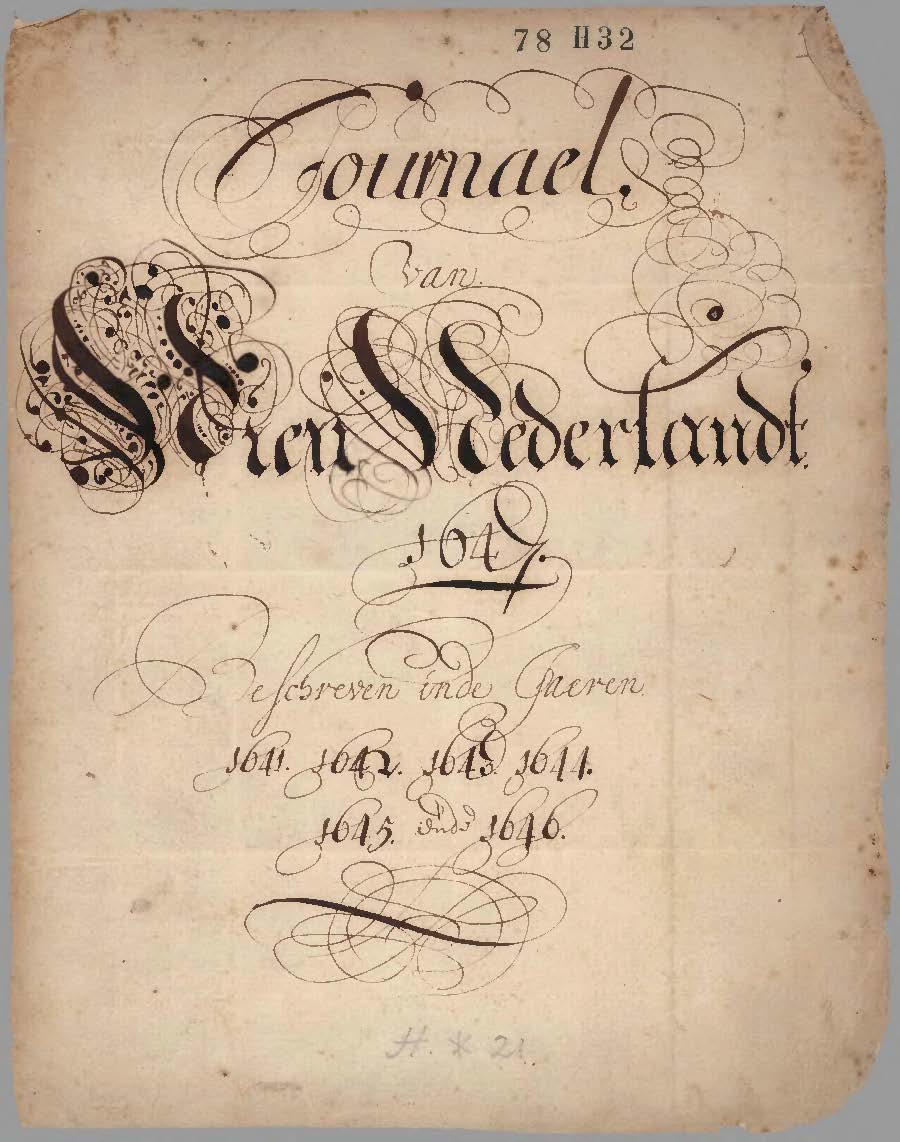 78 H32
Journael.
van
Nieu Nederlandt.
1647.
Beschreven inde Jaeren
1641. 1642. 1643. 1644.
1645. ende 1646.
H. * 21